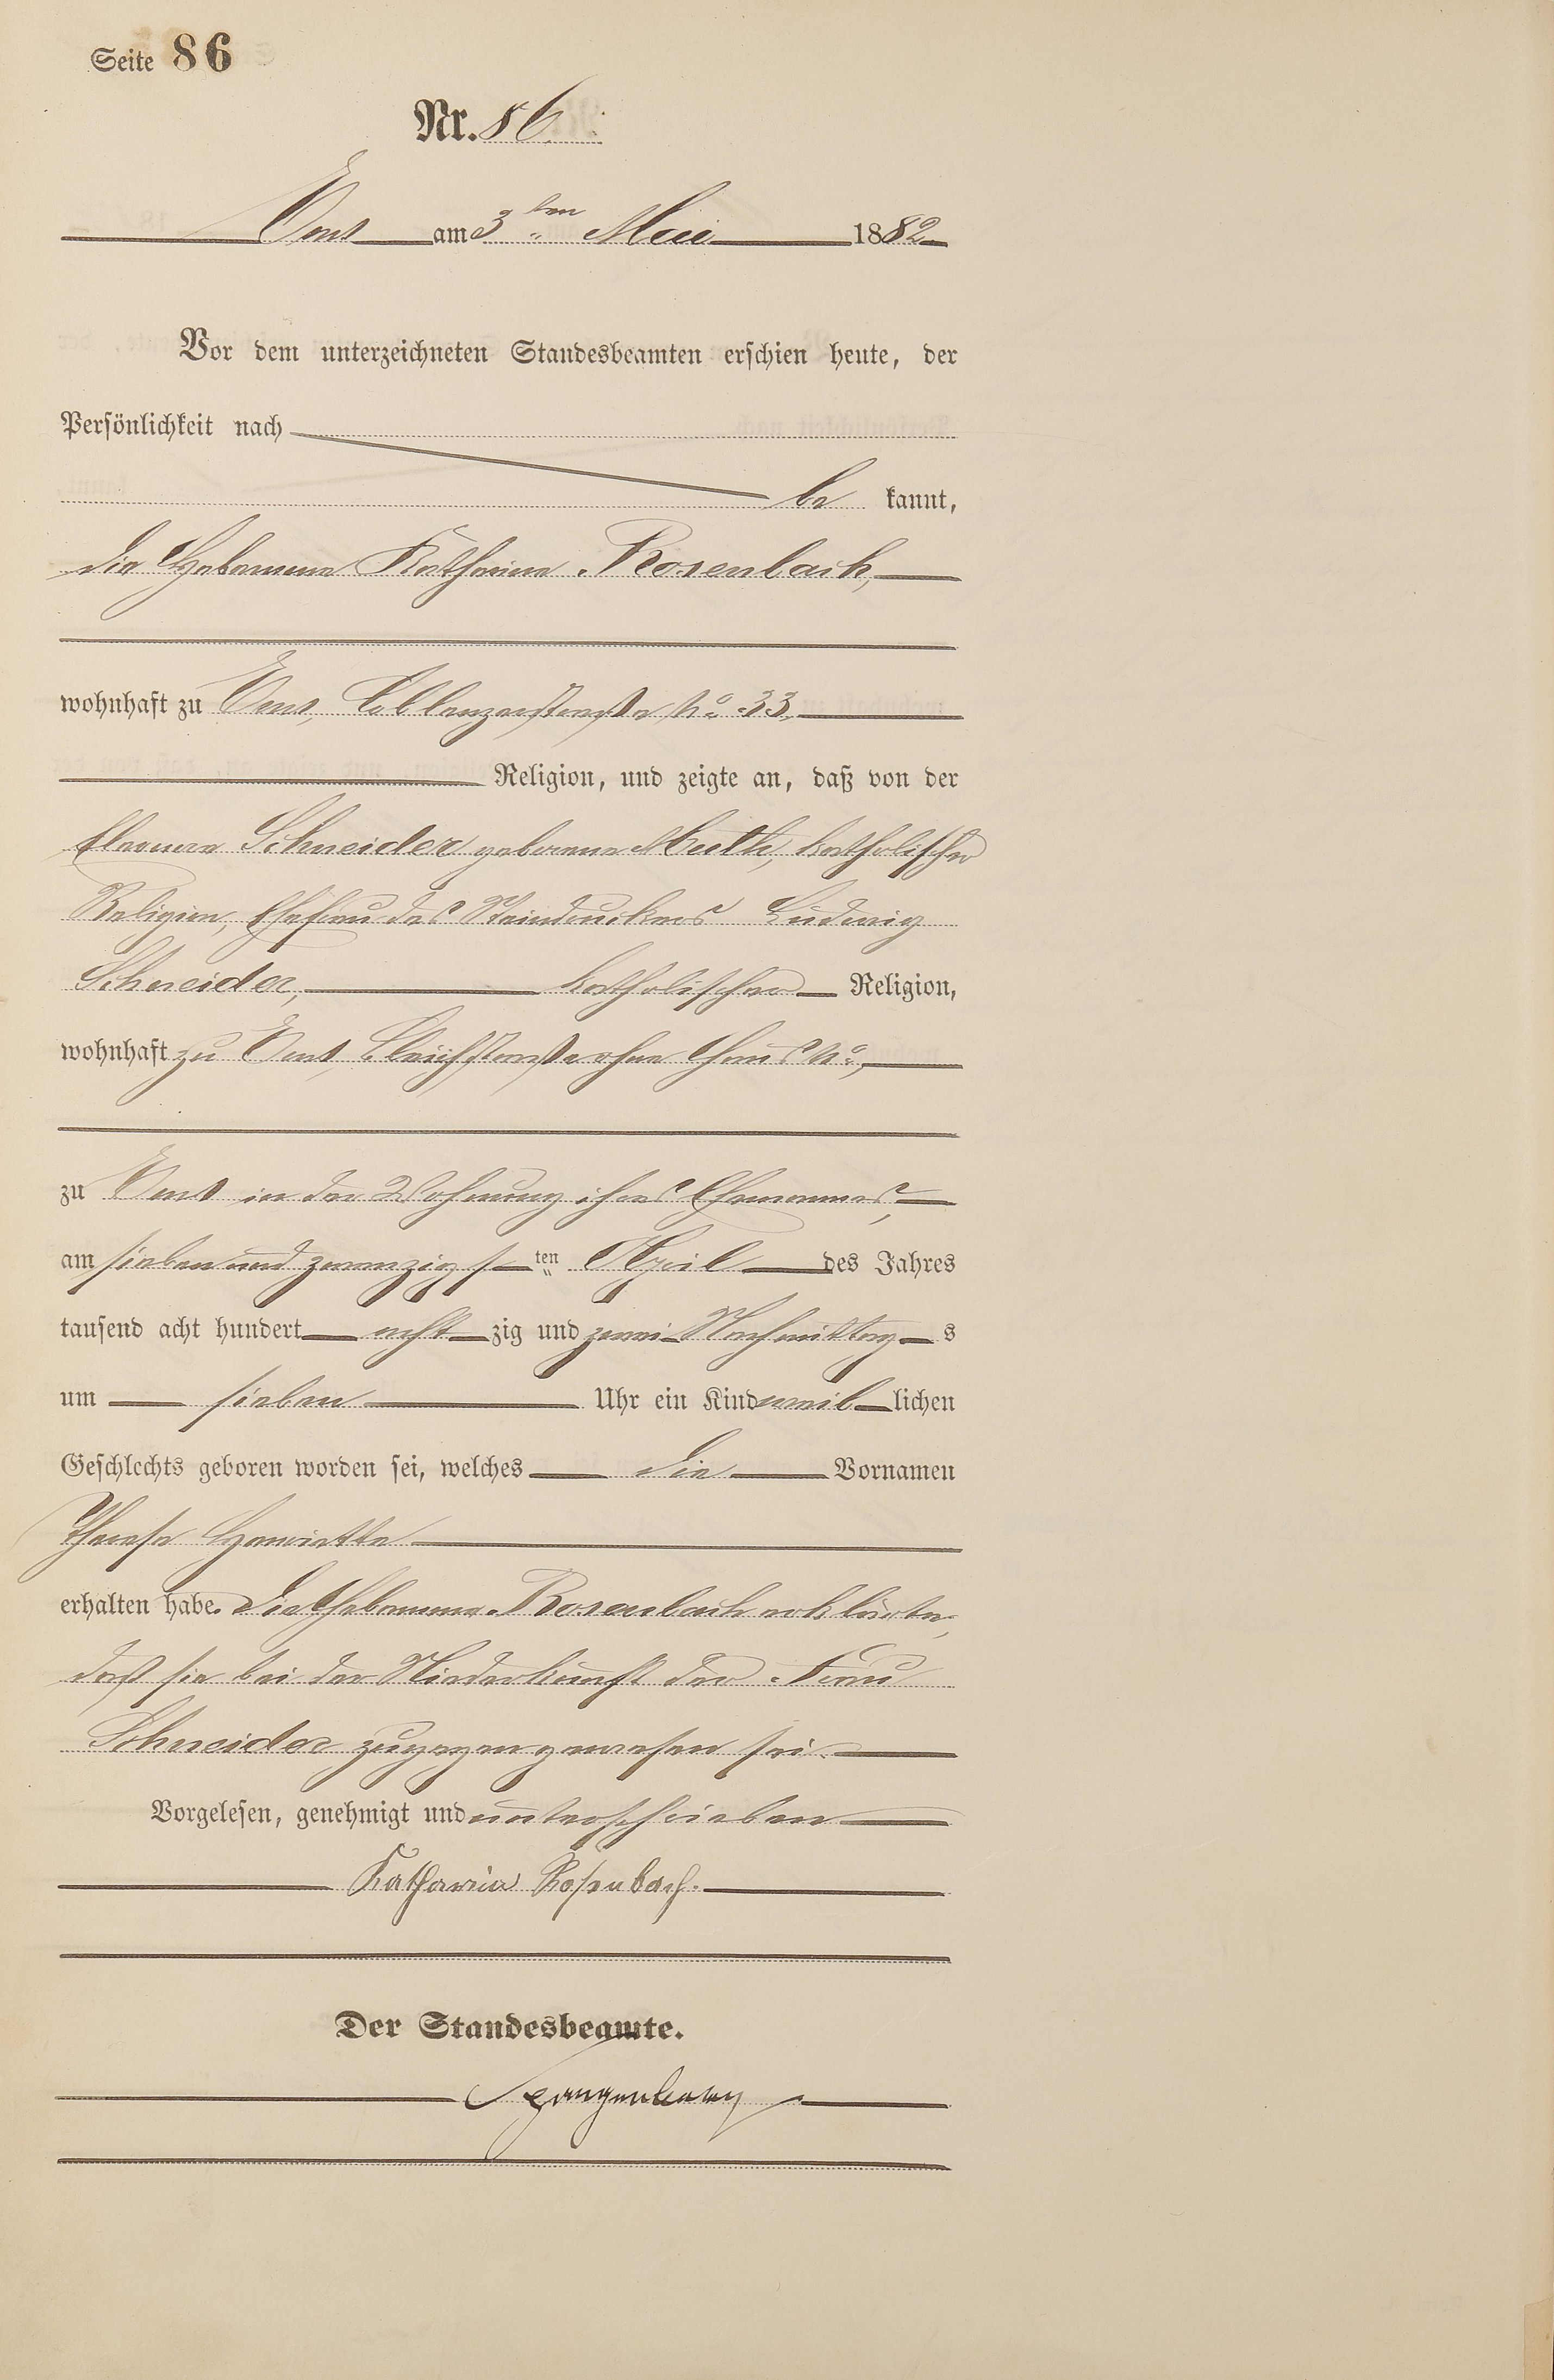 Seite 86
Nr. 86.
Ems am 3ten Mai 1882
Vor dem unterzeichneten Standesbeamten erschien heute, der
Persönlichkeit nach
be kannt,
die Hebamme Katharina Rosenbach,
wohnhaft zu Ems, Coblenzerstraße No. 33,
Religion, und zeigte an, daß von der
Eleonora Schneider geborene Muth, katholischer
Religion, Ehefrau des Steindruckers Ludwig
Schneider, katholischer Religion,
wohnhaft zu Ems, straße ohne Haus No.,
zu Ems in der Wohnung ihres Ehemannes,
am sieben und zwanzigsten April des Jahres
tausend acht hundert acht zig und zwei Nachmittag s
um sieben Uhr ein Kind weib lichen
Geschlechts geboren worden sei, welches die Vornamen
Therese Henriette
erhalten habe. Die Hebamme Rosenbach erklärte,
daß sie bei der Niederkunft der Frau
Schneider zugegen gewesen sei.
Vorgelesen, genehmigt und unterschrieben
Katharina Rosenbach.
Der Standesbeamte.
Spangenberg